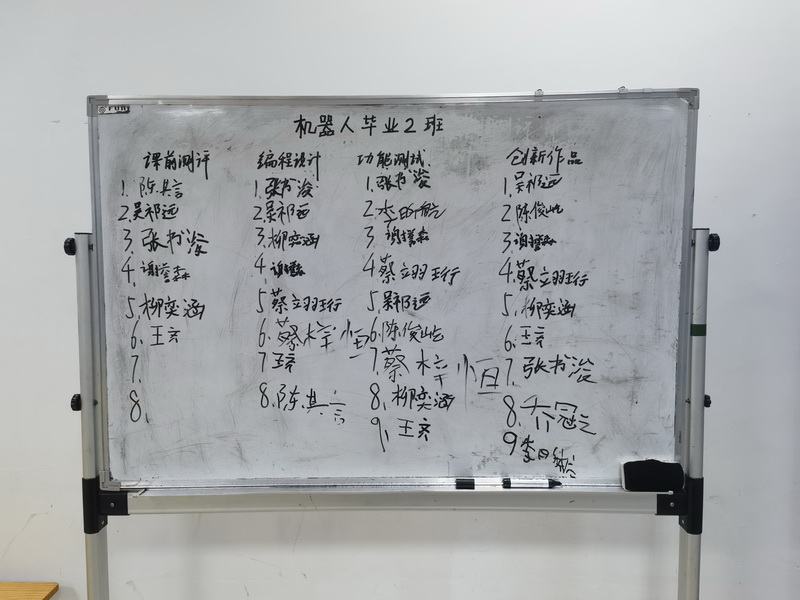 机器人毕业2班
课前测评
1. 陈其言
2. 吴祁远
3. 张书浚
4. 谢 森
5. 柳奕涵
6. 王玄
7.
8.
编程设计
1. 张书浚
2. 吴祁远
3. 柳奕涵
4. 谢 森
5 蔡立羽珩
6. 蔡梓恒
7 王玄
8. 陈其言
功能测试
1. 张书浚
2. 李
3. 谢 森
4 蔡立羽珩
5. 吴祁远
6. 陈俊屹
7. 蔡梓恒
8. 柳奕涵
9. 王玄
创新作品
1. 吴祁远
2. 陈俊屹
3. 谢 森
4. 蔡立羽珩
5. 柳奕涵
6. 王玄
7. 张书浚
8. 乔冠之
9 李